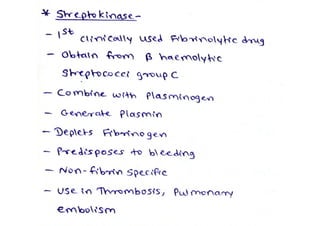 * Streptokinase -
- 1st clinically used Fibrinolytic drug
- Obtain from β haemolytic
Streptococci group C
- Combine with Plasminogen
- Generate Plasmin
- Deplets Fibrinogen
- Predisposes to bleeding
- Non-fibrin specific
- Use in Thrombosis, Pulmonary
embolism